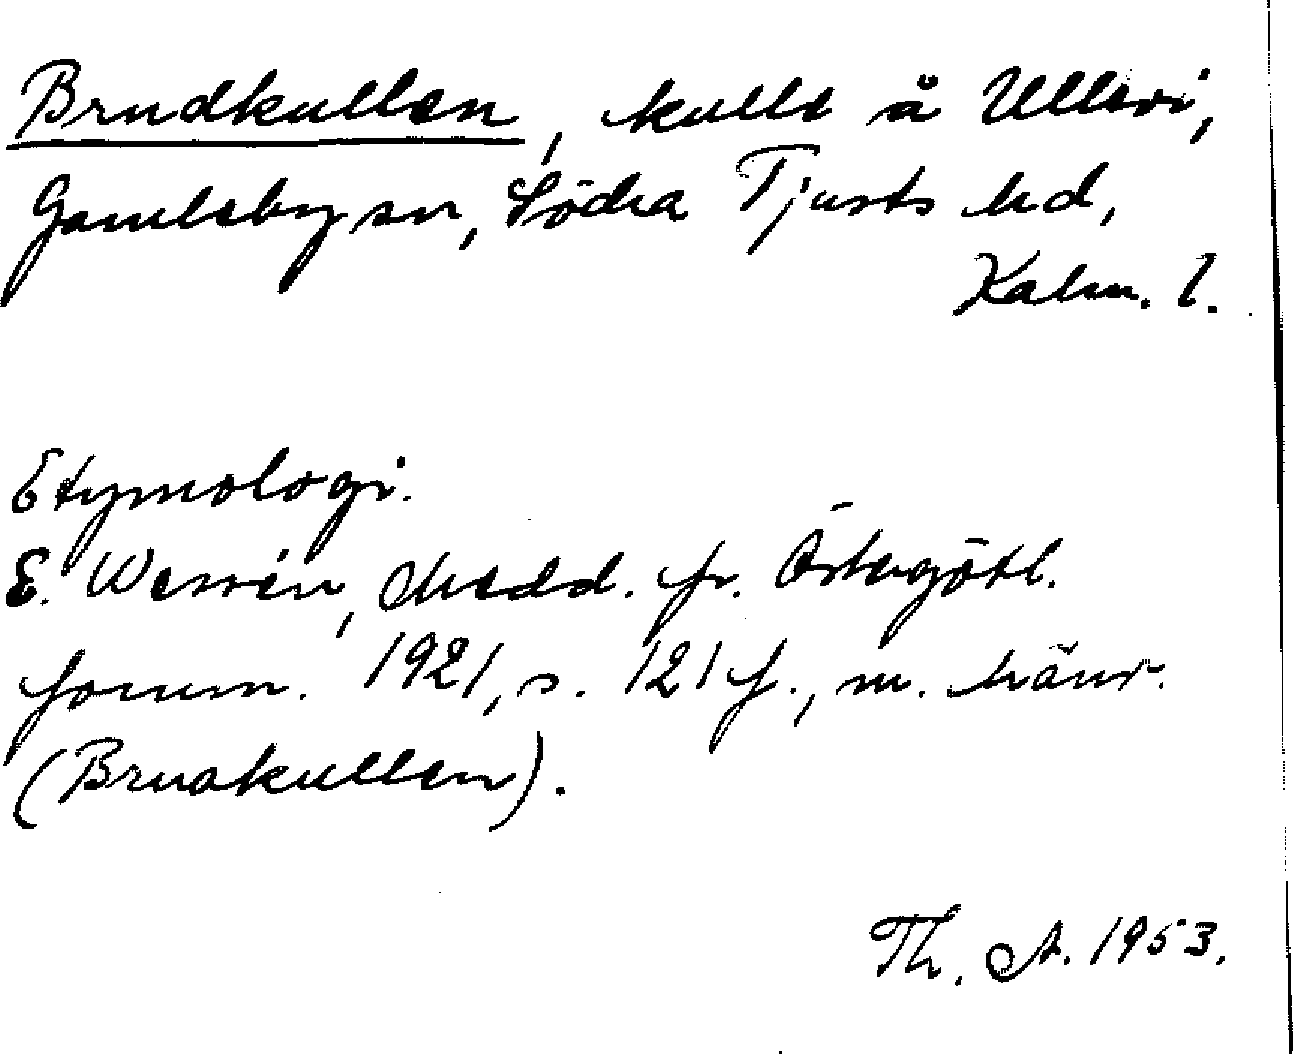 Brudkullen, kulle å Ullevi,
Gamleby sn, Södra Tjusts hd,
Kalm. l.
Etymologi.
E. Wessén, Medd. fr. Östergötl.
fornm. 1921, s. 121 f., m. hänv.
(Brudkullen).
Th. A. 1953.